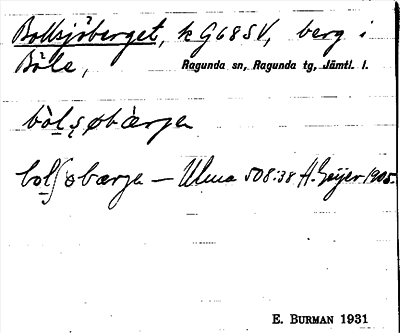 Bollsjöberget, k G68SV, berg i
Böle, Ragunda sn, Ragunda tg, Jämtl. l.
bòlșøbàrjen
bolʃøbærjen – Ulma 508:38 H. Geijer 1905.
E. BURMAN 1931